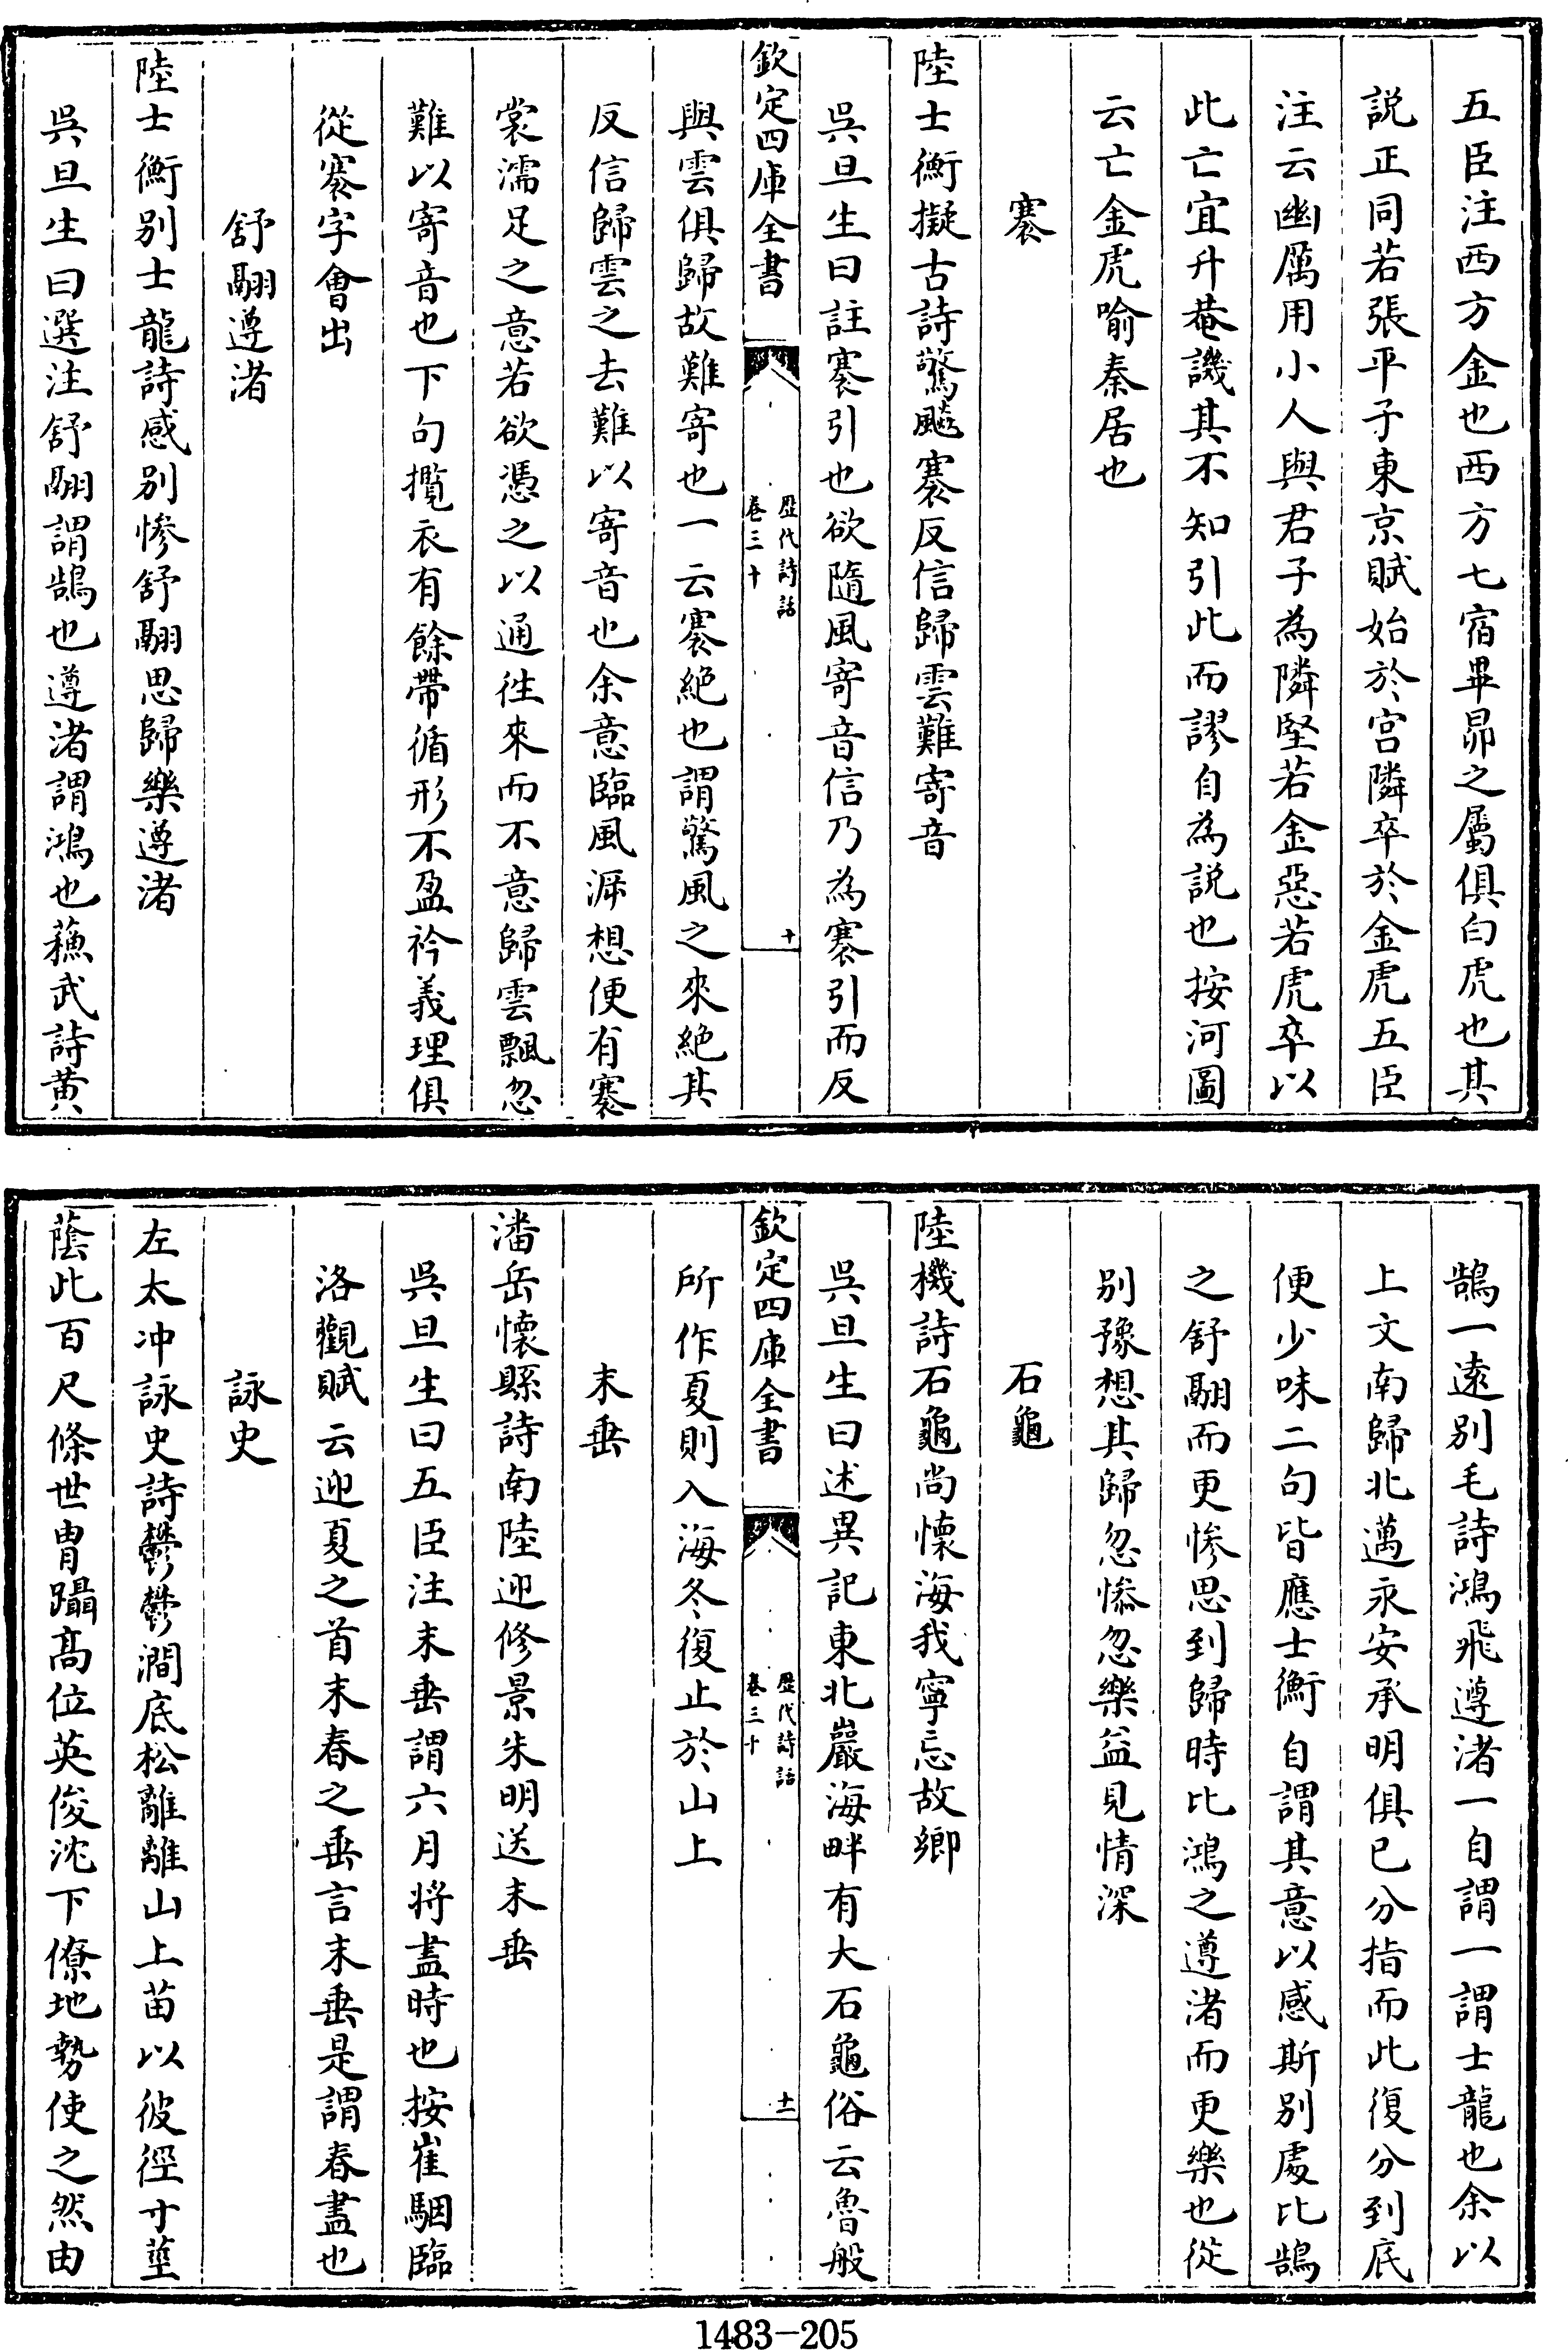 五臣注西方金也西方七宿畢昴之屬俱白虎也其
説正同若張平子東京賦始於宫隣卒於金虎五臣
注云幽厲用小人與君子為隣堅若金惡若虎卒以
此亡宜升菴譏其不知引此而謬自為説也按河圖
云亡金虎喻秦居也
褰
陸士衡擬古詩驚飈褰反信歸雲難寄音
吳旦生曰註褰引也欲隨風寄音信乃為褰引而反
欽定四庫全書
歴代詩話
卷三十
十
與雲俱歸故難寄也一云褰絶也謂驚風之來絶其
反信歸雲之去難以寄音也余意臨風㴑想便有褰
裳濡足之意若欲憑之以通徃來而不意歸雲飄忽
難以寄音也下句攬衣有餘帶循形不盈衿義理俱
從褰字會出
舒翮遵渚
陸士衡别士龍詩感别惨舒翮思歸樂遵渚
吳旦生曰選注舒翮謂鵠也遵渚謂鴻也蘓武詩黄
鵠一逺别毛詩鴻飛遵渚一自謂一謂士龍也余以
上文南歸北邁永安承明俱已分指而此復分到底
便少味二句皆應士衡自謂其意以感斯别處比鵠
之舒翮而更惨思到歸時比鴻之遵渚而更樂也從
别豫想其歸忽惨忽樂益見情深
石龜
陸機詩石龜尚懷海我寧忘故鄉
吳旦生曰述異記東北巖海畔有大石龜俗云魯般
欽定四庫全書
歴代詩話
卷三十
十一
所作夏則入海冬復止於山上
末垂
潘岳懷縣詩南陸迎修景朱明送末垂
吳旦生曰五臣注末垂謂六月將盡時也按崔駰臨
洛觀賦云迎夏之首末春之垂言末垂是謂春盡也
詠史
左太冲詠史詩鬱鬱澗底松離離山上苗以彼徑寸莖
蔭此百尺條世胄躡髙位英俊沈下僚地勢使之然由
1483-205